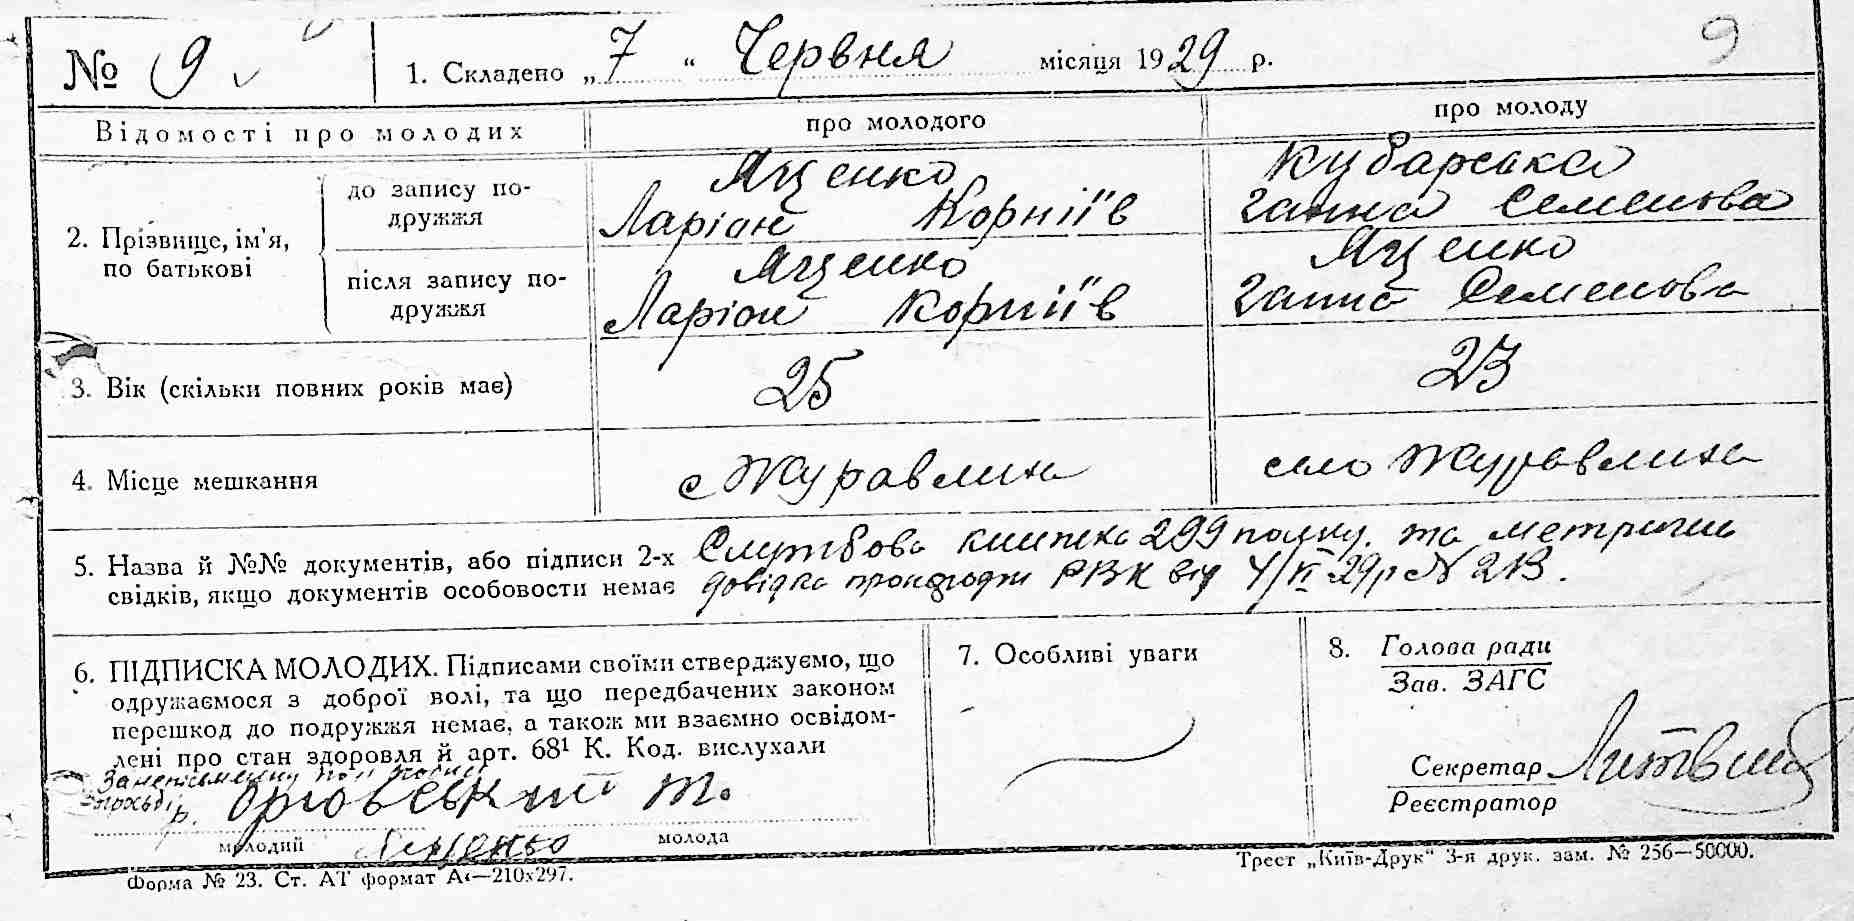 № 9
1. Складено „7“ Червня місяця 1929 р.
9
Відомості про молодих
про молодого
про молоду
2. Прізвище, ім'я, по батькові
до запису подружжя
Яценко
Ларіон Корніїв
Кубарська
Ганна Семенова
після запису подружжя
Яценко
Ларіон Корніїв
Яценко
Ганна Семенова
3. Вік (скільки повних років має)
25
23
4. Місце мешкання
с Журавлиха
село Журавлиха
5. Назва й №№ документів, або підписи 2-х
свідків, якщо документів особовости немає
Службова книжка 299 полку. та метрична
довідка РВК від 29р № 213.
6. ПІДПИСКА МОЛОДИХ. Підписами своїми стверджуємо, що
одружаємося з доброї волі, та що передбачених законом
перешкод до подружжя немає, а також ми взаємно освідом-
лені про стан здоровля й арт. 68¹ К. Код. вислухали
Орловський Т.
молодий Яценко молода
7. Особливі уваги
8. Голова ради
Зав. ЗАГС
Секретар
Реєстратор
Форма № 23. Ст. АТ формат А4—210х297.
Трест „Київ-Друк“ 3-я друк. зам. № 256—50000.